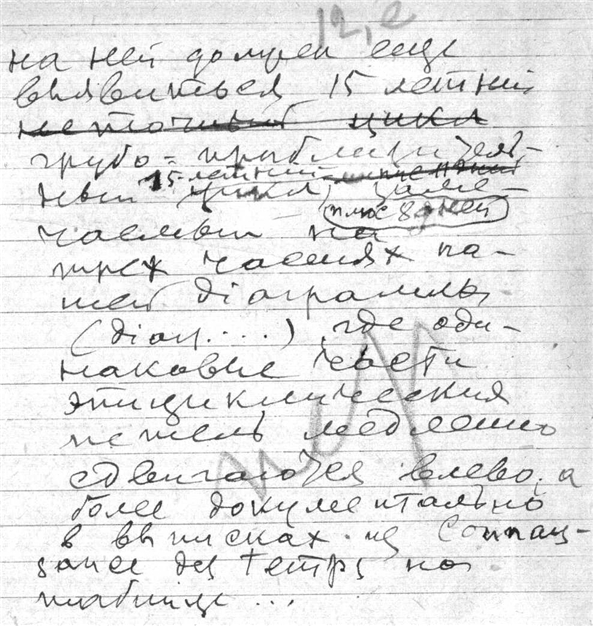 12, e
на ней должен еще
выявиться 15 летний
неточный цикл
грубо-приблизитель-
15 летний
ный цикл, заме-
плюс 8 дней
чаемый на
трех частях на-
шей діаграммы
(діаг....), где оди-
наковые части
эпициклических
петель медленно
сдвигаются влево, а
более документально
в выписках из Connais-
sance des temps на
таблице ...